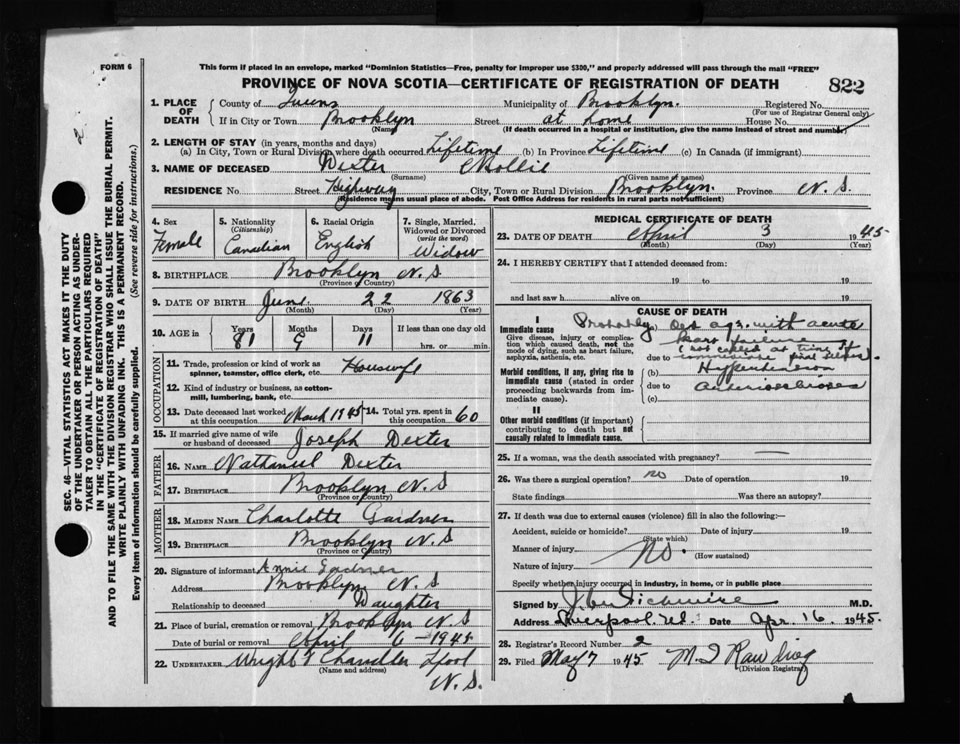 FORM 6
This form if placed in an envelope, marked "Dominion Statistics—Free, penalty for improper use $300," and properly addressed will pass through the mail "FREE"
PROVINCE OF NOVA SCOTIA—CERTIFICATE OF REGISTRATION OF DEATH
822
1. PLACE OF DEATH { County of Queens Municipality of Brooklyn. Registered No.
(For use of Registrar General only)
If in City or Town Brooklyn Street at home House No.
(Name) (If death occurred in a hospital or institution, give the name instead of street and number)
2. LENGTH OF STAY (in years, months and days)
(a) In City, Town or Rural Division where death occurred Lifetime (b) In Province Lifetime (c) In Canada (if immigrant)
3. NAME OF DECEASED Dexter Mollie
(Surname) (Given name or names)
RESIDENCE No. Street Highway City, Town or Rural Division Brooklyn. Province N. S.
(Residence means usual place of abode. Post Office Address for residents in rural parts not sufficient)
4. Sex Female
5. Nationality (Citizenship) Canadian
6. Racial Origin English
7. Single, Married, Widowed or Divorced (write the word) Widow
8. BIRTHPLACE Brooklyn N. S.
(Province or Country)
9. DATE OF BIRTH June 22 1863
(Month) (Day) (Year)
10. AGE in Years 81 Months 9 Days 11 If less than one day old hrs. or min.
OCCUPATION
11. Trade, profession or kind of work as spinner, teamster, office clerk, etc. Housewife
12. Kind of industry or business, as cotton-mill, lumbering, bank, etc.
13. Date deceased last worked at this occupation March 1945 14. Total yrs. spent in this occupation 60
15. If married give name of wife or husband of deceased Joseph Dexter
FATHER
16. NAME Nathaniel Dexter
17. BIRTHPLACE Brooklyn N. S
(Province or Country)
MOTHER
18. MAIDEN NAME Charlotte Gardner
19. BIRTHPLACE Brooklyn N. S
(Province or Country)
20. Signature of informant Annie Gardner
Address Brooklyn N. S
Relationship to deceased Daughter
21. Place of burial, cremation or removal Brooklyn N. S
Date of burial or removal April 6 - 1945
22. UNDERTAKER Wright & Chandler L'pool
(Name and address)
N. S.
MEDICAL CERTIFICATE OF DEATH
23. DATE OF DEATH April 3 1945
(Month) (Day) (Year)
24. I HEREBY CERTIFY that I attended deceased from:
19 to 19
and last saw h alive on 19
CAUSE OF DEATH
I
Immediate cause
Give disease, injury or complication which caused death, not the mode of dying, such as heart failure, asphyxia, asthenia, etc.
Probably (a) Old age with acute
heart failure
(not called at time of
due to immediate
Morbid conditions, if any, giving rise to immediate cause (stated in order proceeding backwards from immediate cause).
(b) Hypertension
due to arteriosclerosis
(c)
II
Other morbid conditions (if important) contributing to death but not causally related to immediate cause.
25. If a woman, was the death associated with pregnancy? —
26. Was there a surgical operation? no Date of operation 19
State findings Was there an autopsy?
27. If death was due to external causes (violence) fill in also the following:—
Accident, suicide or homicide? Date of injury 19
(State which)
Manner of injury No. (How sustained)
Nature of injury
Specify whether injury occurred in industry, in home, or in public place
Signed by M.D.
Address Liverpool Date Apr. 16 1945.
28. Registrar's Record Number 2
29. Filed May 7 1945
(Division Registrar)
SEC. 46—VITAL STATISTICS ACT MAKES IT THE DUTY
OF THE UNDERTAKER OR PERSON ACTING AS UNDER-
TAKER TO OBTAIN ALL THE PARTICULARS REQUIRED
IN THE "CERTIFICATE OF REGISTRATION OF DEATH"
AND TO FILE THE SAME WITH THE DIVISION REGISTRAR WHO SHALL ISSUE THE BURIAL PERMIT.
WRITE PLAINLY WITH UNFADING INK. THIS IS A PERMANENT RECORD.
Every item of information should be carefully supplied. (See reverse side for instructions.)